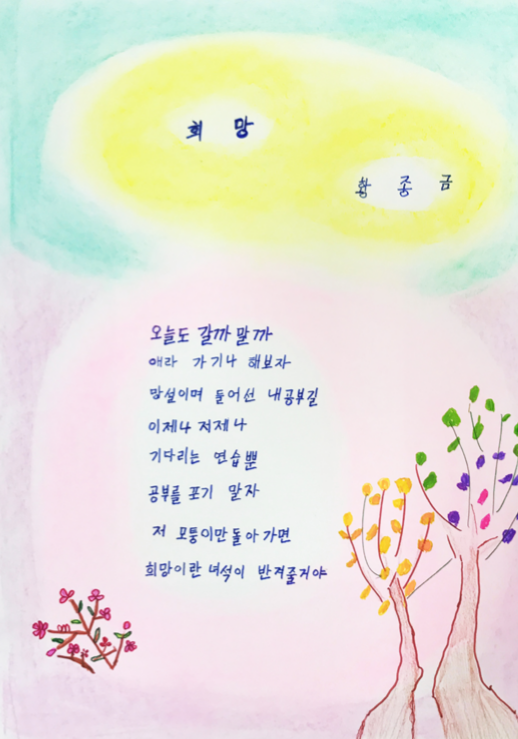 희망
황종금
오늘도 갈까 말까
애라 가기나 해보자
망설이며 들어선 내공부길
이제나 저제나
기다리는 연습뿐
공부를 포기 말자
저 모퉁이만 돌아가면
희망이란 녀석이 반겨줄거야